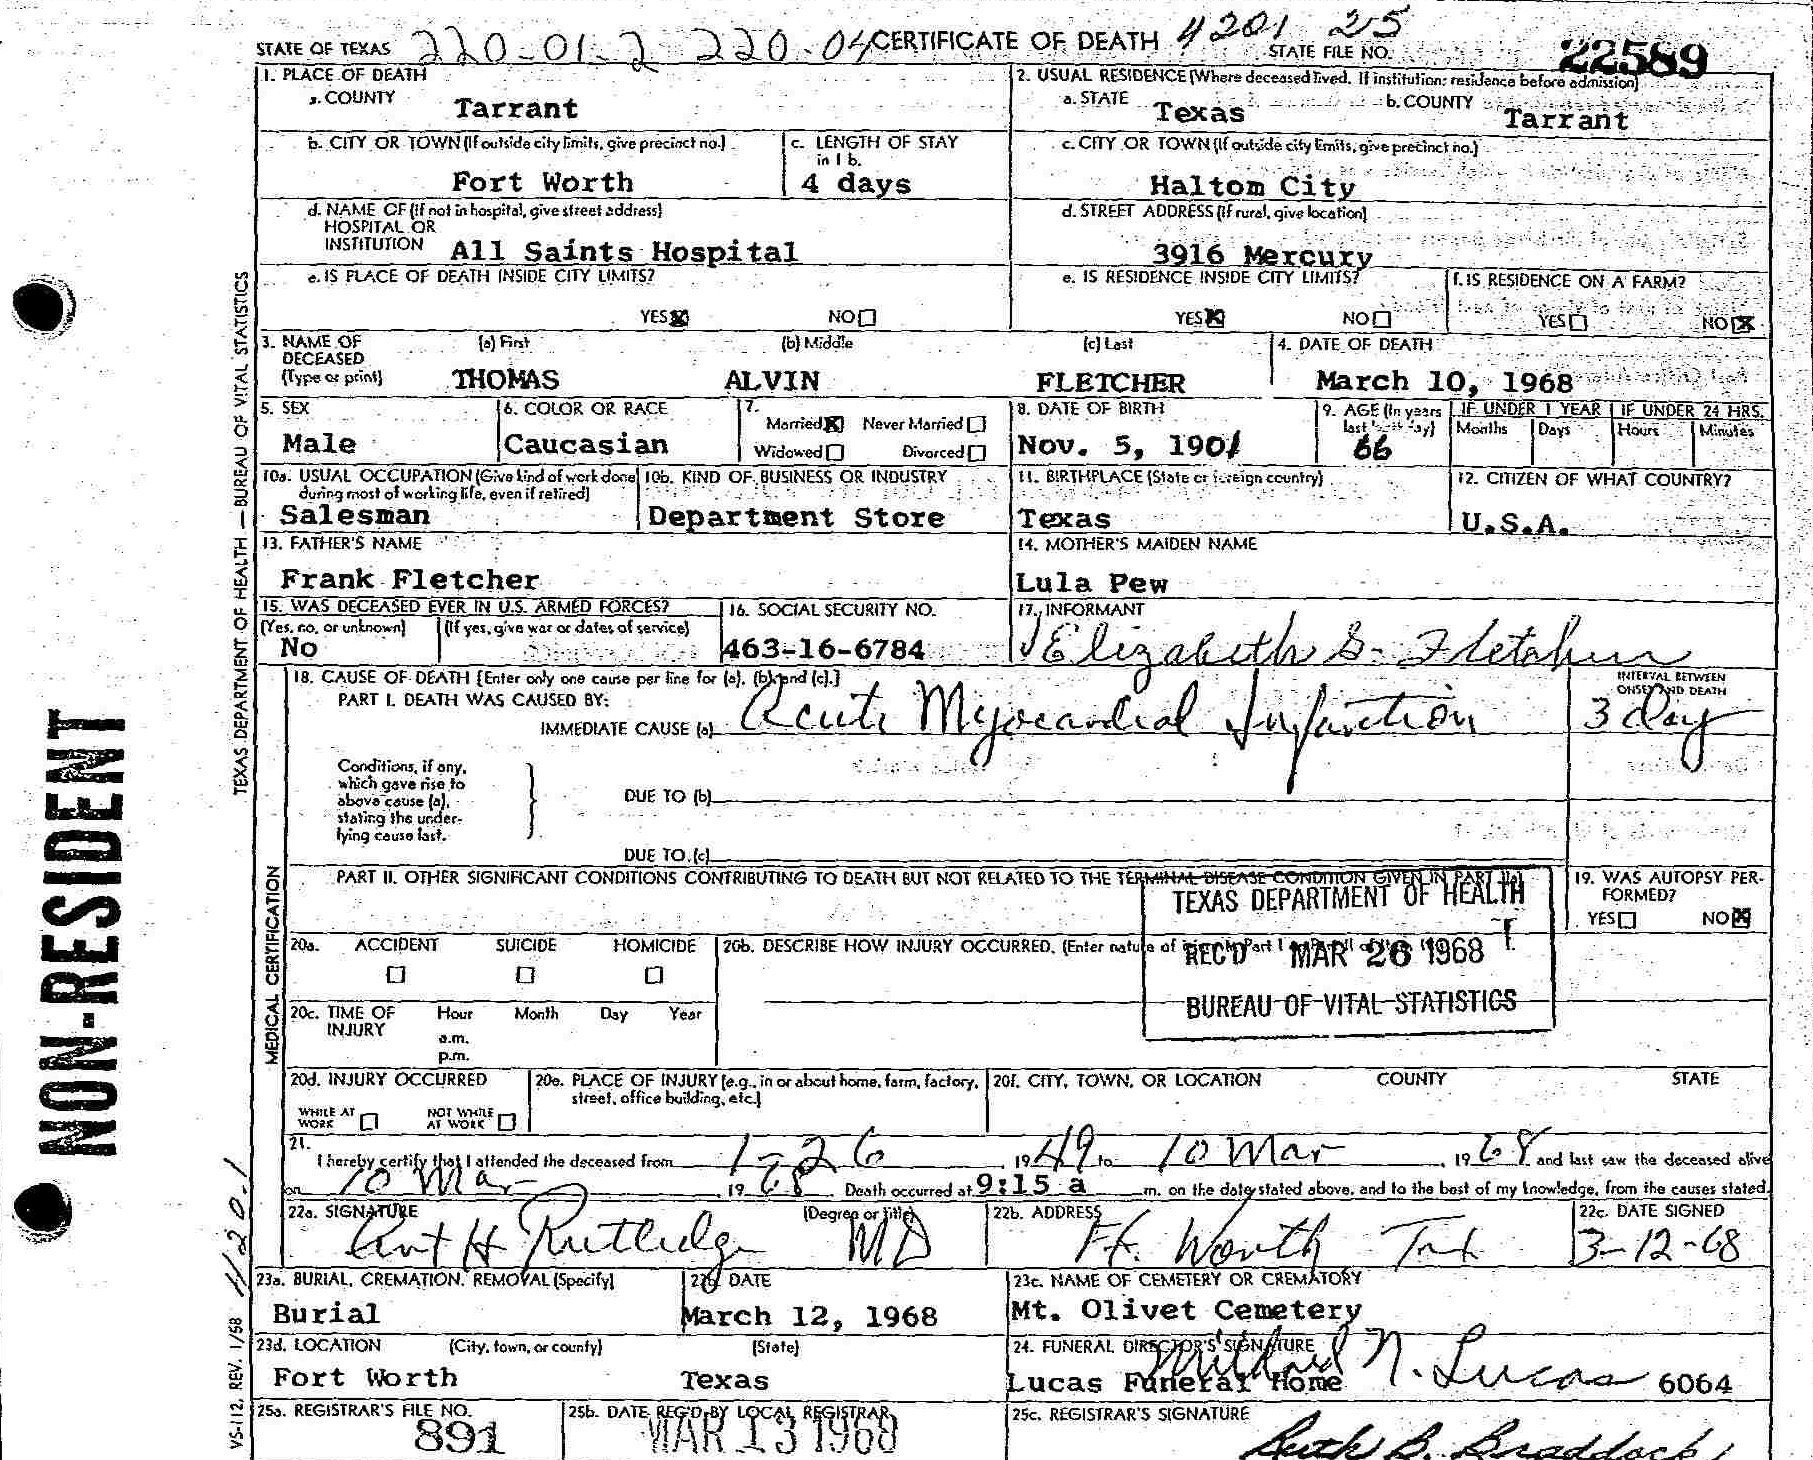 STATE OF TEXAS 220-01-2 220-04 CERTIFICATE OF DEATH 4201 25 STATE FILE NO. 22589
1. PLACE OF DEATH
a. COUNTY
Tarrant
2. USUAL RESIDENCE (Where deceased lived. If institution: residence before admission)
a. STATE Texas b. COUNTY Tarrant
b. CITY OR TOWN (If outside city limits, give precinct no.)
Fort Worth
c. LENGTH OF STAY
in 1 b.
4 days
c. CITY OR TOWN (If outside city limits, give precinct no.)
Haltom City
d. NAME OF (If not in hospital, give street address)
HOSPITAL OR
INSTITUTION All Saints Hospital
d. STREET ADDRESS (If rural, give location)
3916 Mercury
e. IS PLACE OF DEATH INSIDE CITY LIMITS?
YES NO
e. IS RESIDENCE INSIDE CITY LIMITS?
YES NO
f. IS RESIDENCE ON A FARM?
YES NO
3. NAME OF
DECEASED
(Type or print)
(a) First (b) Middle (c) Last
THOMAS ALVIN FLETCHER
4. DATE OF DEATH
March 10, 1968
5. SEX
Male
6. COLOR OR RACE
Caucasian
7.
Married Never Married
Widowed Divorced
8. DATE OF BIRTH
Nov. 5, 1901
9. AGE (In years
last birthday)
66
IF UNDER 1 YEAR IF UNDER 24 HRS.
Months Days Hours Minutes
10a. USUAL OCCUPATION (Give kind of work done
during most of working life, even if retired)
Salesman
10b. KIND OF BUSINESS OR INDUSTRY
Department Store
11. BIRTHPLACE (State or foreign country)
Texas
12. CITIZEN OF WHAT COUNTRY?
U.S.A.
13. FATHER'S NAME
Frank Fletcher
14. MOTHER'S MAIDEN NAME
Lula Pew
15. WAS DECEASED EVER IN U.S. ARMED FORCES?
(Yes, no, or unknown) (If yes, give war or dates of service)
No
16. SOCIAL SECURITY NO.
463-16-6784
17. INFORMANT
Elizabeth S. Fletcher
18. CAUSE OF DEATH [Enter only one cause per line for (a), (b), and (c).]
PART I. DEATH WAS CAUSED BY:
IMMEDIATE CAUSE (a) Acute Myocardial Infarction
INTERVAL BETWEEN
ONSET AND DEATH
3 day
Conditions, if any,
which gave rise to
above cause (a),
stating the under-
lying cause last.
DUE TO (b)
DUE TO (c)
PART II. OTHER SIGNIFICANT CONDITIONS CONTRIBUTING TO DEATH BUT NOT RELATED TO THE TERMINAL DISEASE CONDITION GIVEN IN PART I(a)
19. WAS AUTOPSY PER-
FORMED?
YES NO
TEXAS DEPARTMENT OF HEALTH
REC'D MAR 26 1968
BUREAU OF VITAL STATISTICS
20a. ACCIDENT SUICIDE HOMICIDE
20b. DESCRIBE HOW INJURY OCCURRED. (Enter nature of
20c. TIME OF
INJURY
Hour Month Day Year
a.m.
p.m.
20d. INJURY OCCURRED
WHILE AT
WORK
NOT WHILE
AT WORK
20e. PLACE OF INJURY (e.g., in or about home, farm, factory,
street, office building, etc.)
20f. CITY, TOWN, OR LOCATION COUNTY STATE
21.
I hereby certify that I attended the deceased from 1-26, 1949 to 10 Mar, 1968 and last saw the deceased alive
on 10 Mar, 1968. Death occurred at 9:15 a m. on the date stated above, and to the best of my knowledge, from the causes stated.
22a. SIGNATURE (Degree or title)
H Rutledge MD
22b. ADDRESS
Ft. Worth
22c. DATE SIGNED
3-12-68
23a. BURIAL, CREMATION, REMOVAL (Specify)
Burial
23b. DATE
March 12, 1968
23c. NAME OF CEMETERY OR CREMATORY
Mt. Olivet Cemetery
23d. LOCATION (City, town, or county) (State)
Fort Worth Texas
24. FUNERAL DIRECTOR'S SIGNATURE
Mildred N. Lucas
Lucas Funeral Home 6064
25a. REGISTRAR'S FILE NO.
891
25b. DATE REC'D BY LOCAL REGISTRAR
MAR 13 1968
25c. REGISTRAR'S SIGNATURE
Ruth B. Braddock
NON-RESIDENT
TEXAS DEPARTMENT OF HEALTH — BUREAU OF VITAL STATISTICS
MEDICAL CERTIFICATION
VS-112, REV. 1/58